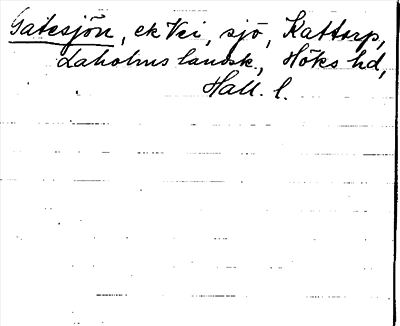 Gatesjön, ek Vei, sjö, Kattarp,
Laholms landsk., Höks hd,
Hall. l.